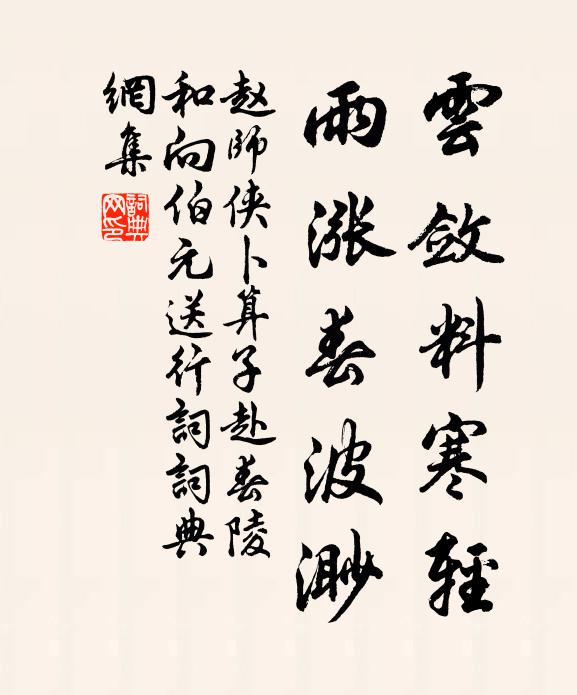 雲斂料寒輕
雨漲春波渺
赵師侠卜算子赴春陵
和向伯元送行詞詞典
網集
詞典
网印